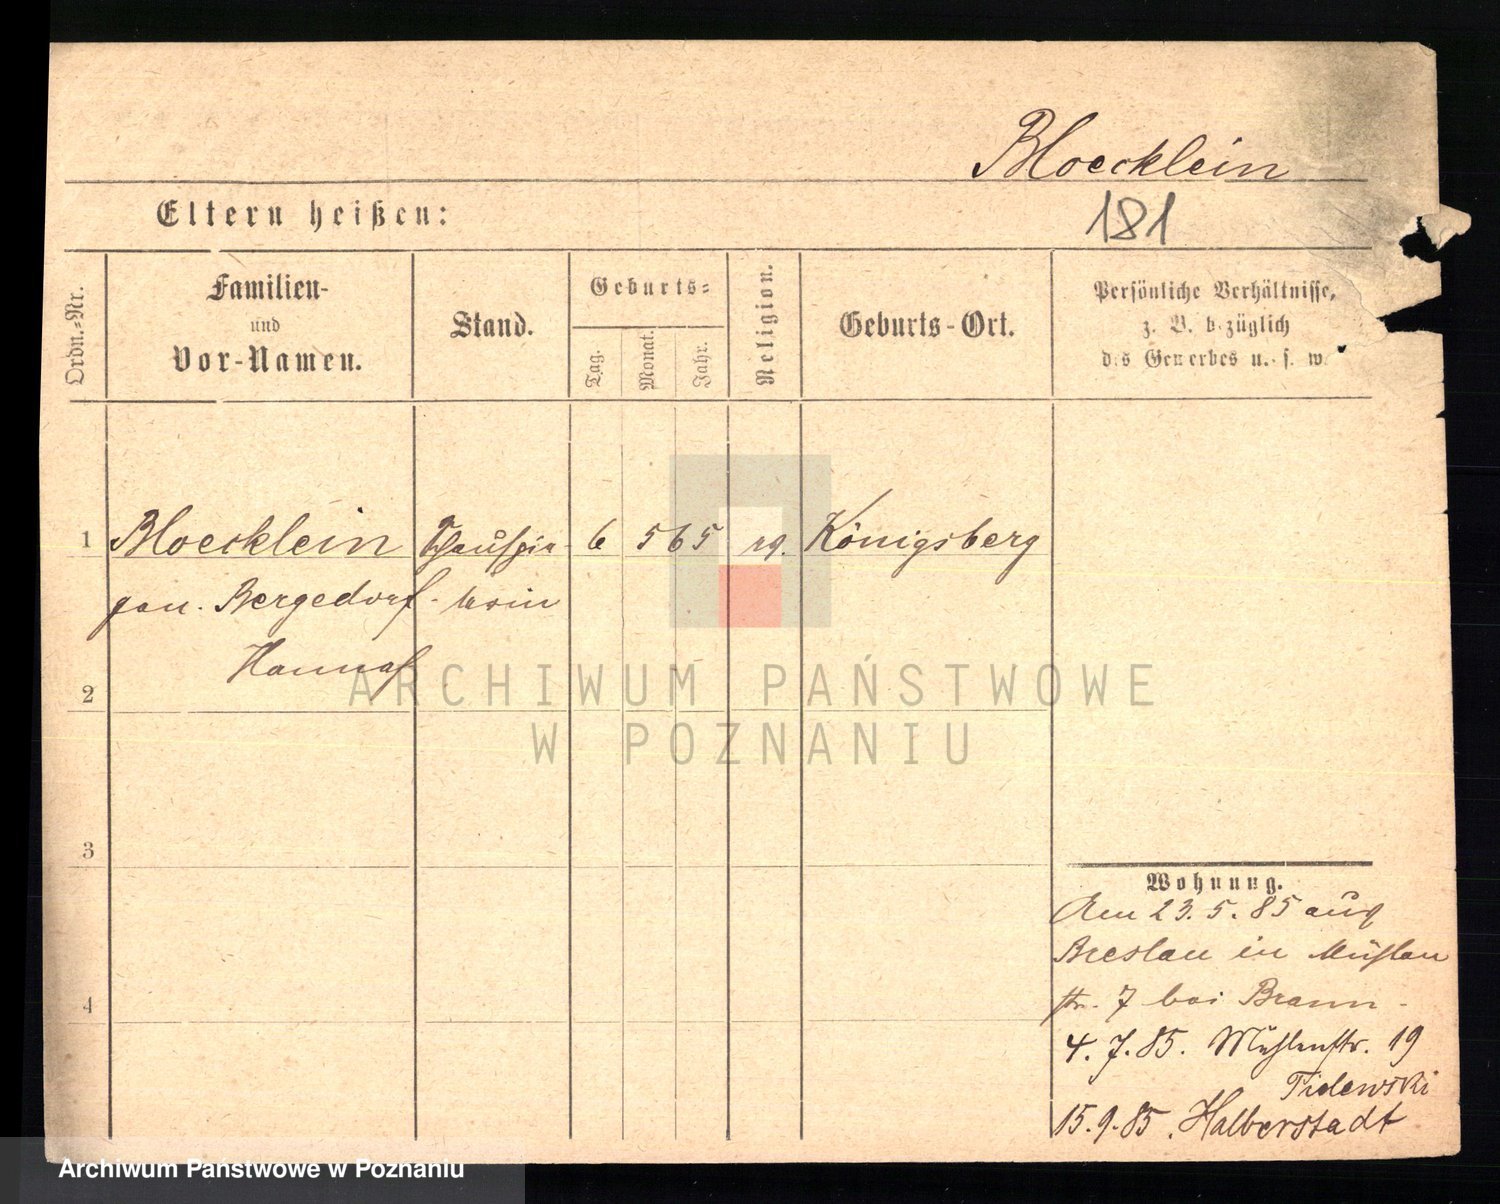 Bloecklein
Eltern heißen:
181
Ordn.-Nr.
Familien-
und
Vor-Namen.
Stand.
Geburts-
Tag.
Monat.
Jahr.
Religion.
Geburts-Ort.
Persönliche Verhältnisse,
z. B. bezüglich
des Gewerbes u. s. w.
1 Bloecklein Schauspie- 6 5 65 Königsberg
gen. Bergedorf lerin
Hannah
2
3
4
Wohnung.
Am 23. 5. 85 aus
Breslau in Mühlen
str. 7 bei Braun
4. 7. 85. Mühlenstr. 19
15. 9. 85. Halberstadt
ARCHIWUM PAŃSTWOWE
W POZNANIU
Archiwum Państwowe w Poznaniu